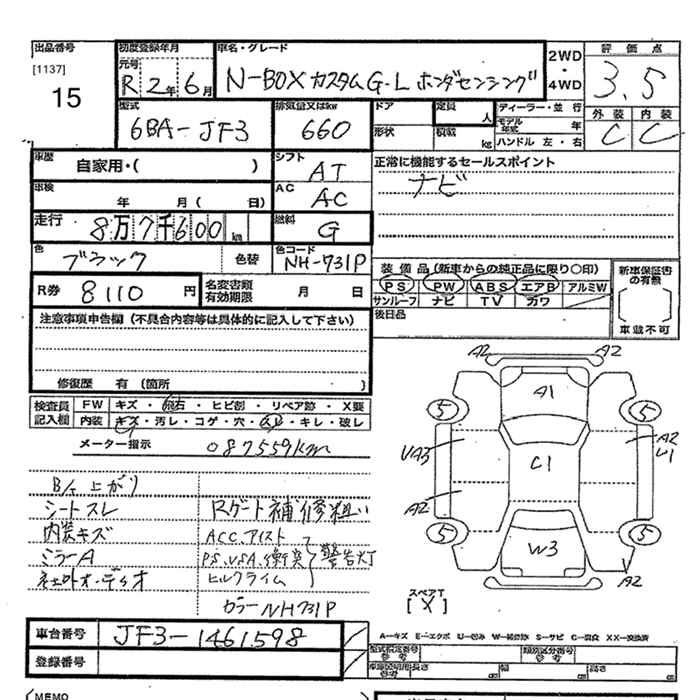 出品番号
[1137]
15
初度登録年月
元号
R 2年 6月
車名・グレード
N-BOX カスタム G・L ホンダセンシング
2WD
・
4WD
評価点
3.5
外装 内装
C C
型式
6BA-JF3
排気量又はkw
660
ドア
形状
定員
人
積載
kg
ディーラー・並行
モデル年式 年
ハンドル 左・右
車歴
自家用・( )
シフト
AT
正常に機能するセールスポイント
ナビ
車検
年 月( 日)
AC
AC
走行
8万7千600 km
燃料
G
色
ブラック
色替
色コード
NH-731P
装備品(新車からの純正品に限り〇印)
PS PW ABS エアB アルミW
サンルーフ ナビ TV カワ
新車保証書の有無
車載不可
R券
8110 円
名変書類有効期限
月 日
後日品
注意事項申告欄(不具合内容等は具体的に記入して下さい)
修復歴 有(箇所 )
検査員記入欄
FW キズ・飛石・ヒビ割・リペア跡・X要
内装 キズ・汚レ・コゲ・穴・スレ・キレ・破レ
メーター指示
087559km
A2 A2
A1
5 5
UA3
C1
A2
U1
A2
5 5
W3
A2
スペアT
[X]
シートスレ
内装キズ
ミラーA
社外オーディオ
Rゲート補修粗い
ACC.アイスト
PS.VSA.衝突
ヒルクライム
警告灯
カラーNH731P
A―キズ E―エクボ U―凹み W―補修跡 S―サビ C―腐食 XX―交換済
車台番号
JF3-1461598
登録番号
型式指定番号 参考
類別区分番号 参考
長さ cm
幅 cm
高さ cm
MEMO